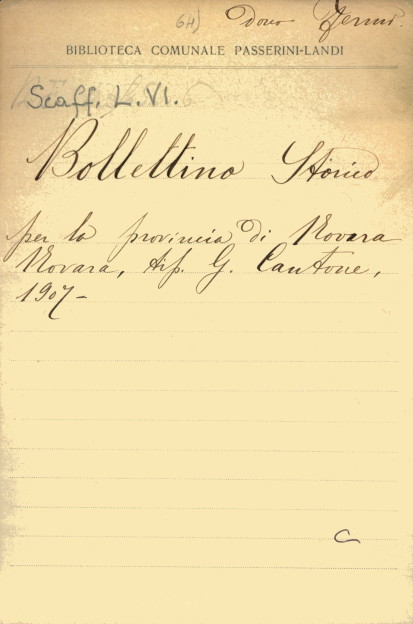 64) dono
BIBLIOTECA COMUNALE PASSERINI-LANDI
Scaff. L. VI.
Bollettino Storico
per la provincia di Novara
Novara, tip. G. Cantone,
1907-
C